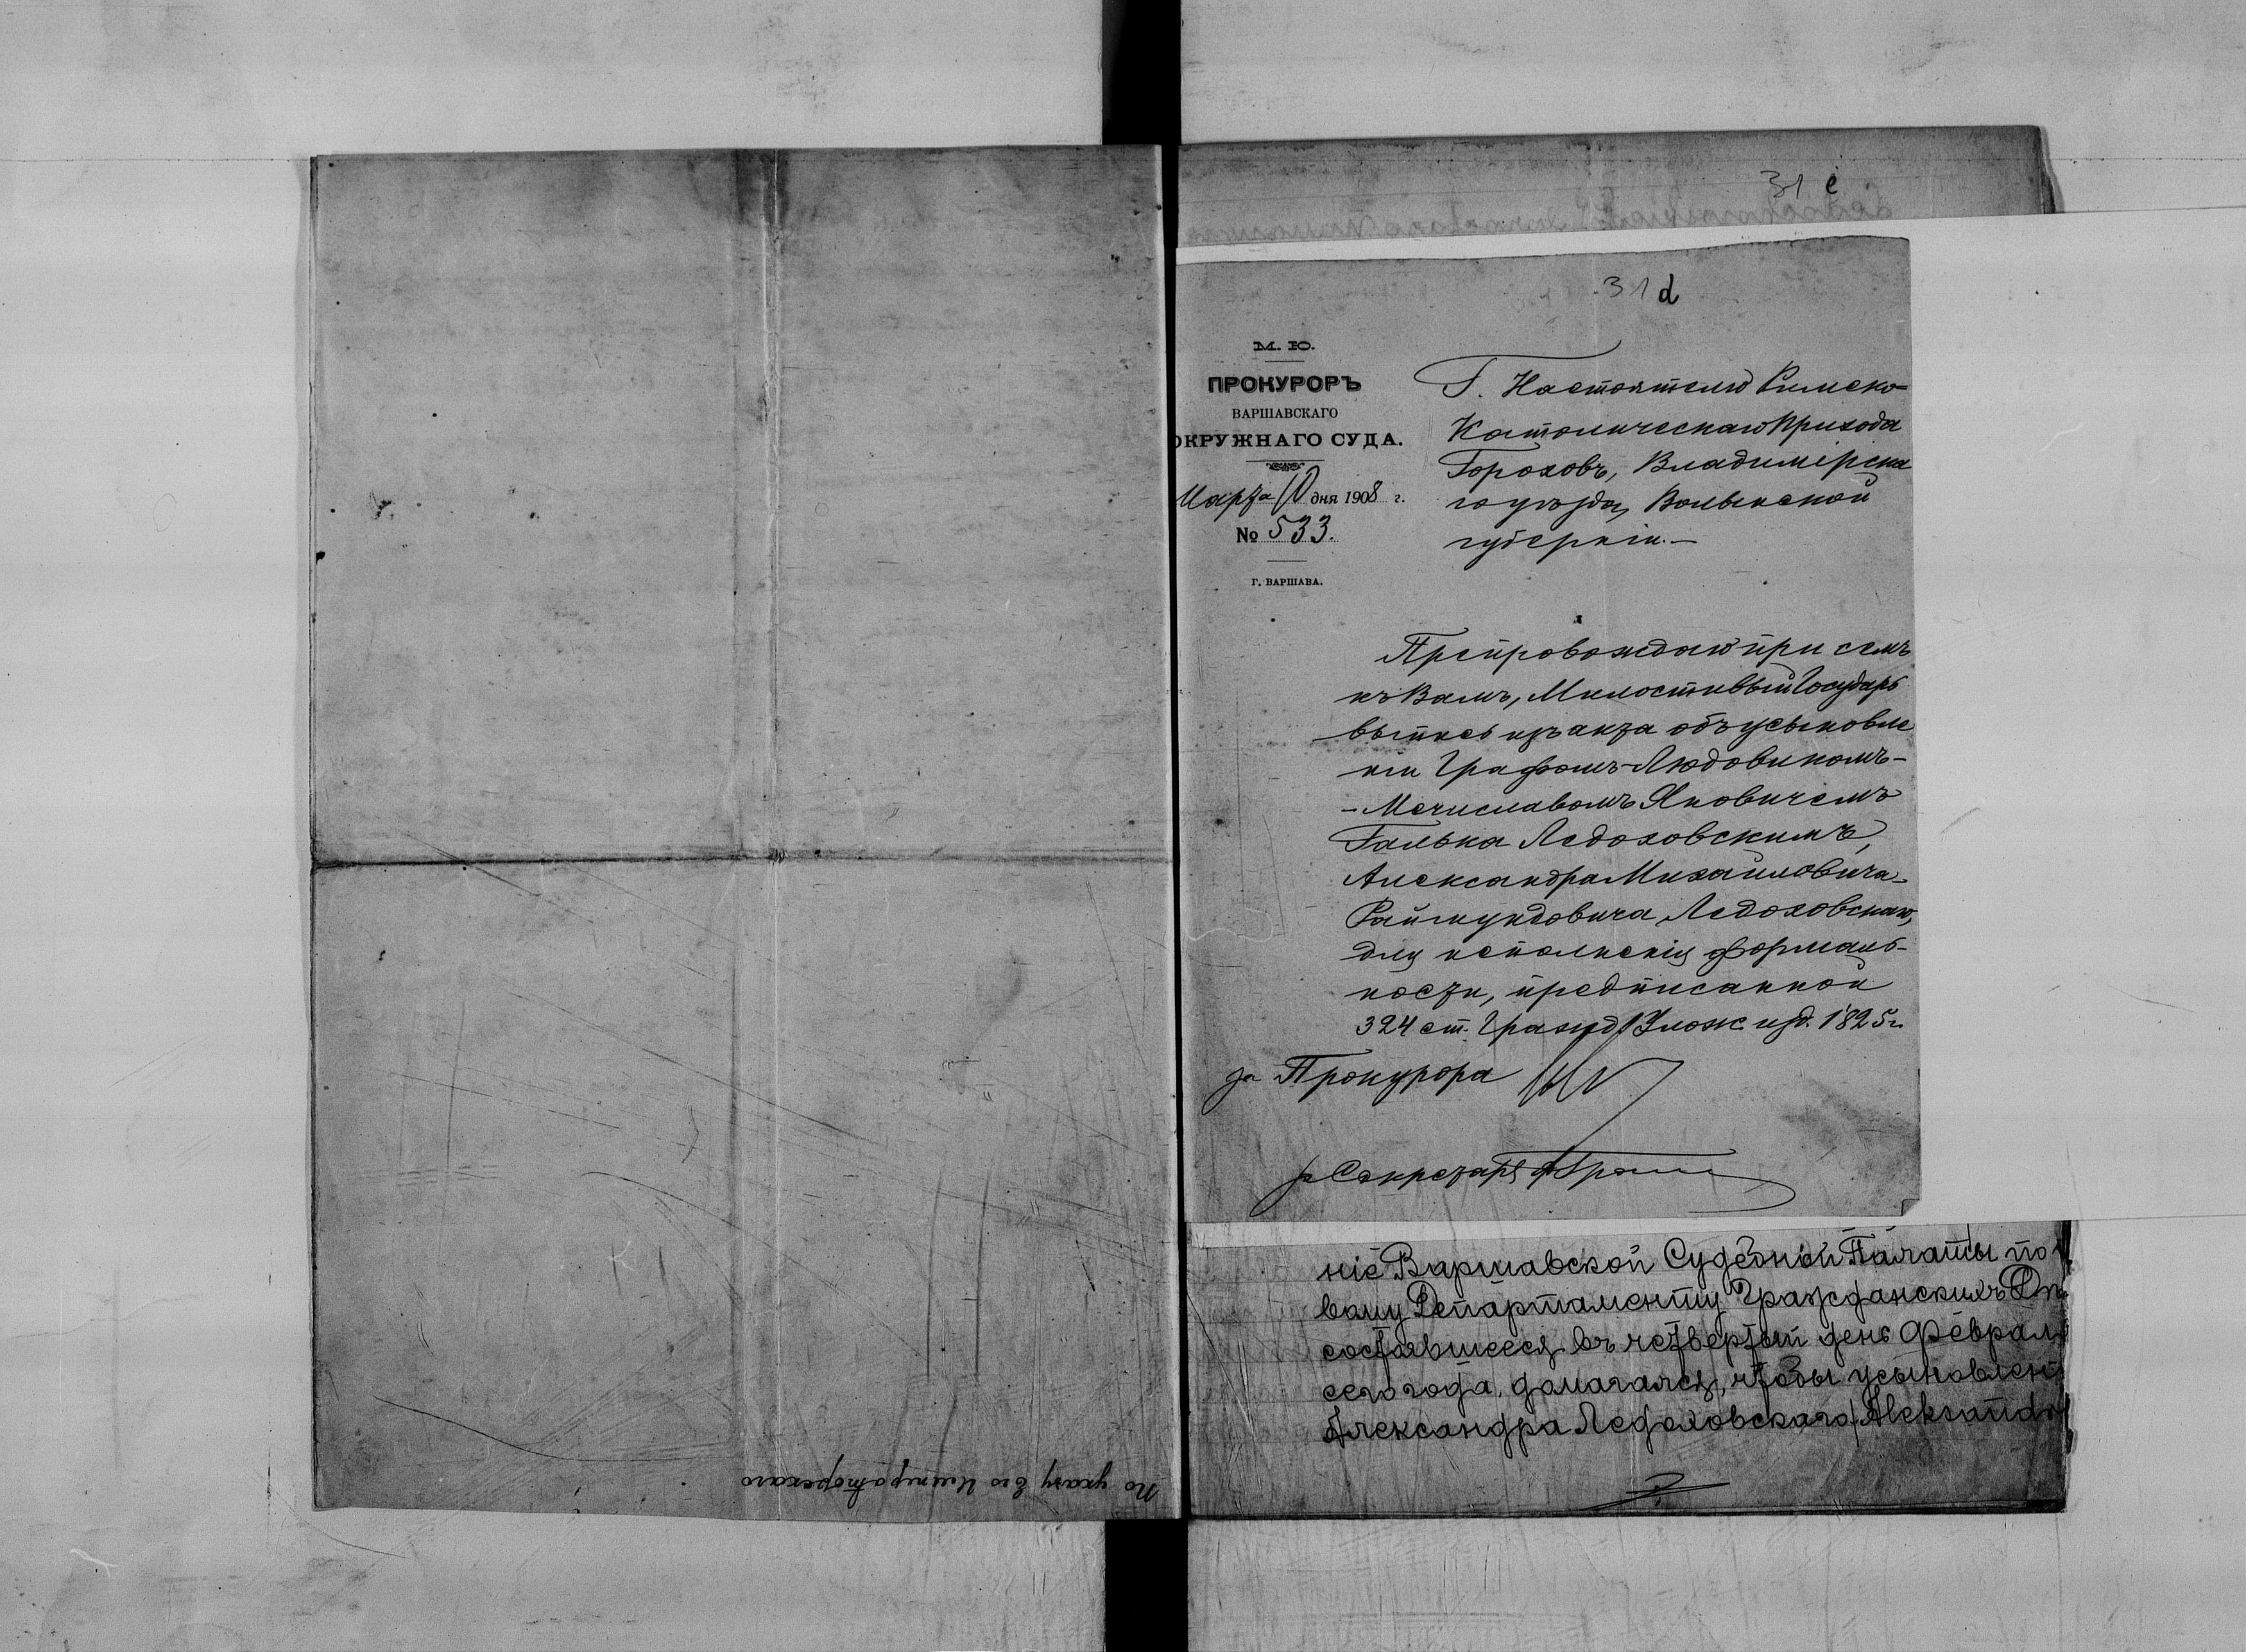 31 e
31 d
М. Ю.
ПРОКУРОРЪ
ВАРШАВСКАГО
ОКРУЖНАГО СУДА.
Марта 10 дня 1908 г.
№ 533.
Г. ВАРШАВА.
Г. Настоятелю Римско-
Католическаго Прихода
Гороховъ, Владимірска
го уѣзда, Волынской
губерніи.—
Препровождаю при семъ
къ Вамъ, Милостивый Государь
выпись изъ акта объ усыновле
ніи Графомъ Людовикомъ-
-Мечиславомъ Яновичемъ
Галька Ледоховскимъ,
Александра Михайловича-
Раймундовича Ледоховскаго,
для исполненія формаль-
ности, предписанной
324 ст. Гражд. Улож. изд. 1825 г.
за Прокурора
за Секретаря
ніе Варшавской Судебной Палаты по
вому Департаменту Гражданскихъ
состоявшееся въ четвертый день Феврал
сего года, домагаясь, чтобы усыновлен
Александра Ледоховскаго /Aleksandr
По указу Его Императорскаго